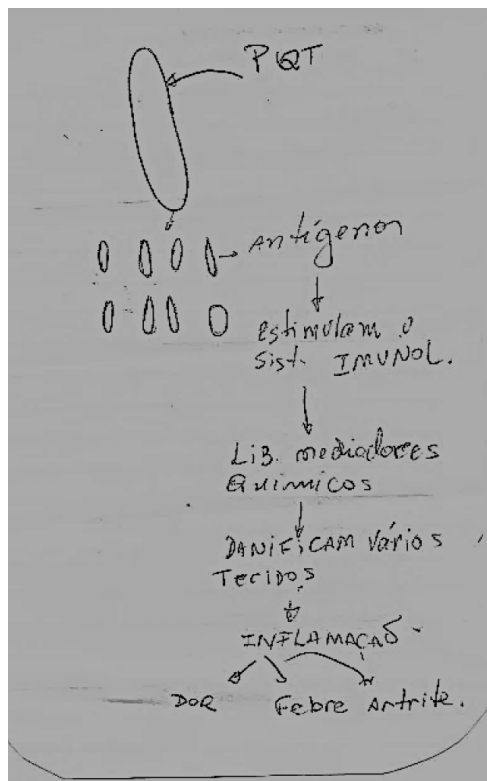 PQT
Antígenos
Estimulam o
Sist. IMUNOL.
Lib. mediadores
Químicos
DANIFICAM Vários
Tecidos
INFLAMAÇÃO
DOR Febre Artrite.